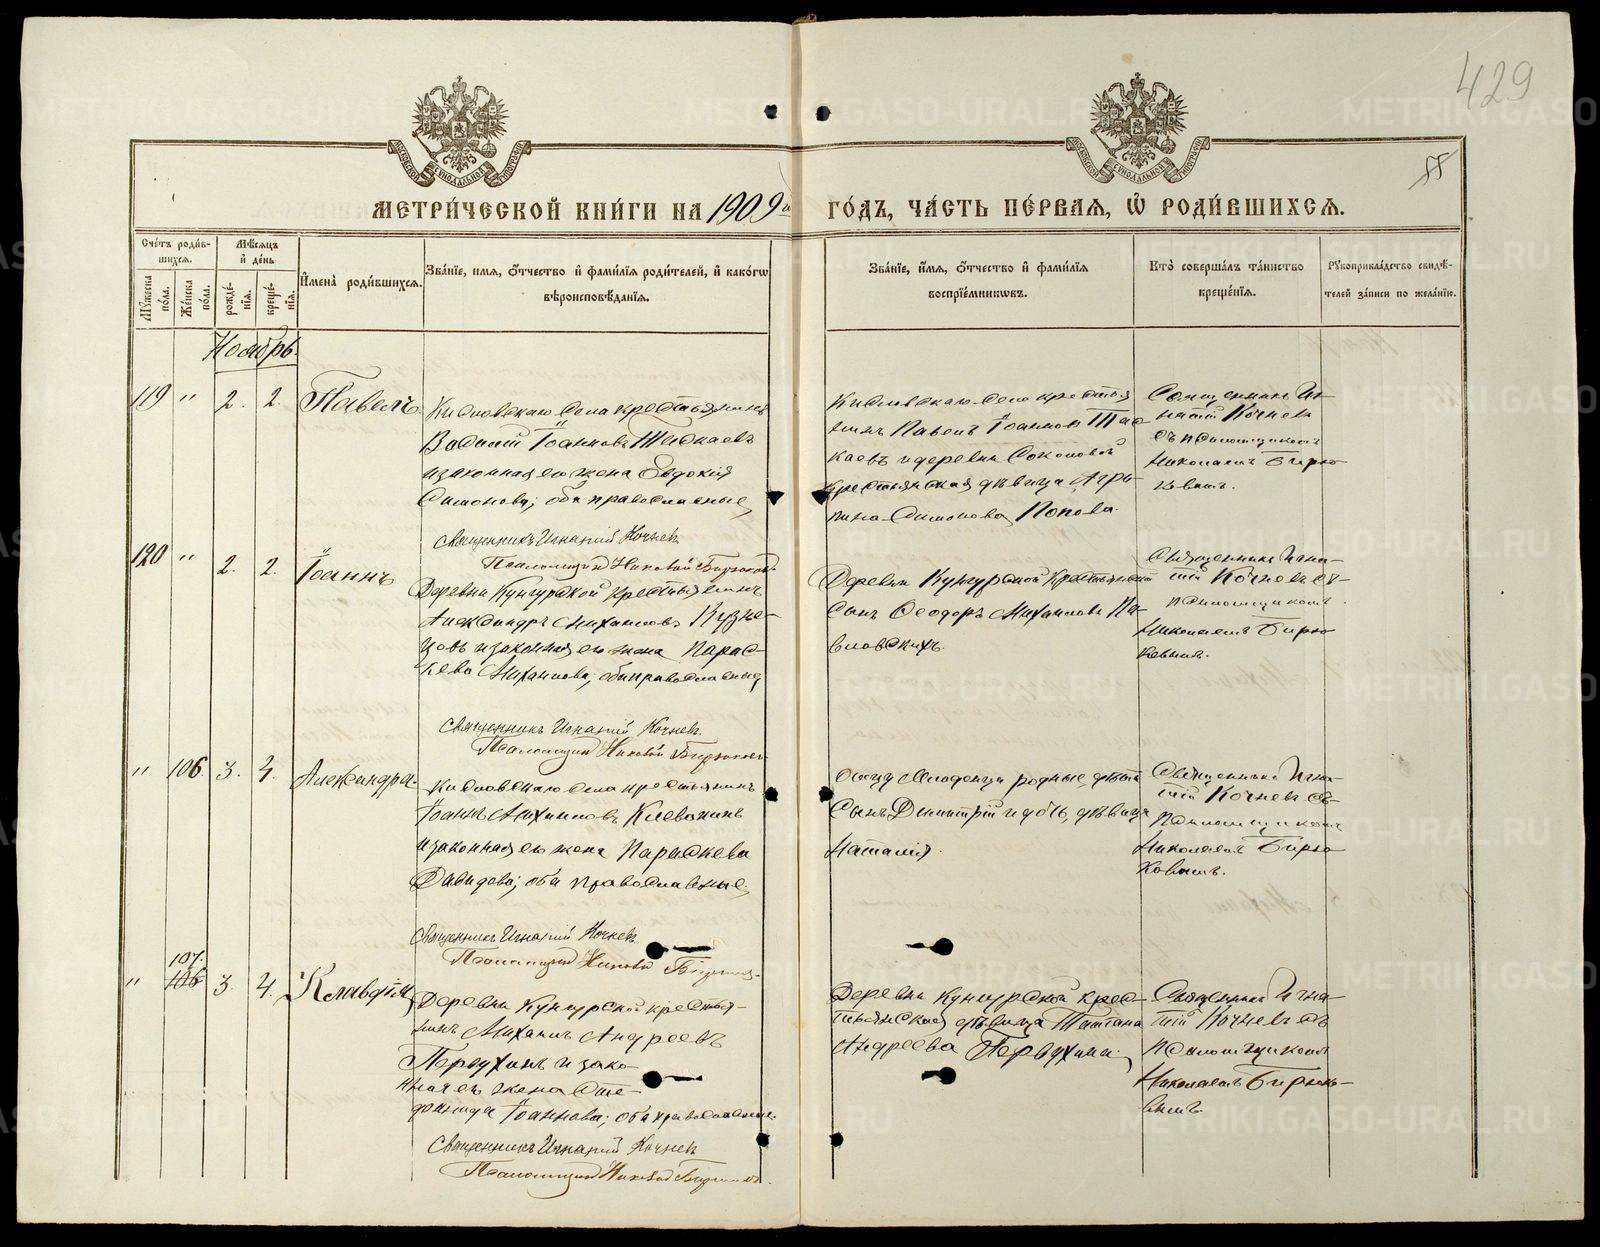 429
88
МЕТРИ́ЧЕСКОЙ КНИ́ГИ НА 1909й ГО́ДЪ, ЧА́СТЬ ПЕ́РВАЯ, Ѡ РОДИ́ВШИХСЯ.
Сче́тъ роди́вшихся.
Мѣ́сяцъ и́ де́нь
Му́жеска по́ла.
Же́нска по́ла.
рожде́нїя.
креще́нїя.
И҆мена̀ роди́вшихся.
Зва́нїе, имя, ѻ҆́тчество и҆ фами́лїя роди́телей, и҆ како́гѡ
вѣроисповѣ́данїя.
Зва́нїе, и҆́мя, ѻ҆́тчество и҆ фами́лїя
воспрїе́мникѡвъ.
Кто̀ соверша́лъ та́инство
креще́нїя.
Рꙋкоприкла́дство свидѣ́-
телей за́писи по жела́нїю.
Ноябрь.
119 " 2. 2. Павелъ
Кисловскаго села крестьянинъ
Василій Іоанновъ Таскаевъ
и законная его жена Евдокія
Симонова; оба православные
Священникъ Игнатій Кочневъ
Псаломщик Николай Бирюков
Кисловскаго села крестья
нинъ Павелъ Іоанновъ Тас
каевъ и деревни Соколовой
крестьянская дѣвица Агри-
пина Симонова Попова.
Священник Иг-
натій Кочневъ
съ псаломщикомъ
Николаемъ Бирю
ковымъ.
120 " 2. 2. Іоаннъ
Деревни Кунгурской крестьянинъ
Александръ Михаиловъ Кузне-
цовъ и законная его жена Парас-
кева Михаилова; оба православные
Священникъ Игнатій Кочневъ.
Псаломщик Николай Бирюков
Деревни Кунгурской крестьянскій
сынъ Ѳеодоръ Михаиловъ Па-
вловскихъ.
Священникъ Игна-
тій Кочневъ съ
псаломщикомъ
Николаемъ Бирю
ковымъ.
" 106. 3. 4. Александра
Кисловскаго села крестьянинъ
Іоаннъ Михаиловъ Клевакинъ
и законная его жена Параскева
Давидова; оба православные.
Священникъ Игнатій Кочневъ
Псаломщик Николай Бирюков
Отцу младенца родные дѣти
сынъ Димитрій и дочь, дѣвица
Наталія.
Священникъ Игна-
тій Кочневъ съ
псаломщикомъ
Николаемъ Бирю
ковымъ.
107.
" 106 3. 4. Клавдія
Деревни Кунгурской крестья-
нинъ Михаилъ Андреевъ
Первухинъ и зако-
ная его жена Сте-
фанида Іоаннова; оба православные.
Священникъ Игнатій Кочневъ
Псаломщик Николай Бирюковъ.
Деревни Кунгурской крес-
тьянская дѣвица Татіана
Андреева Первухина.
Священникъ Игна-
тій Кочневъ съ
псаломщикомъ
Николаемъ Бирюко-
вымъ.